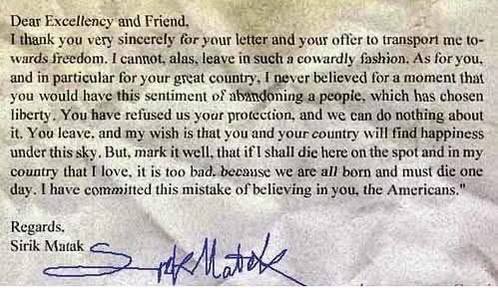 Dear Excellency and Friend,
I thank you very sincerely for your letter and your offer to transport me to-
wards freedom. I cannot, alas, leave in such a cowardly fashion. As for you,
and in particular for your great country, I never believed for a moment that
you would have this sentiment of abandoning a people, which has chosen
liberty. You have refused us your protection, and we can do nothing about
it. You leave, and my wish is that you and your country will find happiness
under this sky. But, mark it well, that if I shall die here on the spot and in my
country that I love, it is too bad, because we are all born and must die one
day. I have committed this mistake of believing in you, the Americans."
Regards,
Sirik Matak
Sirik Matak